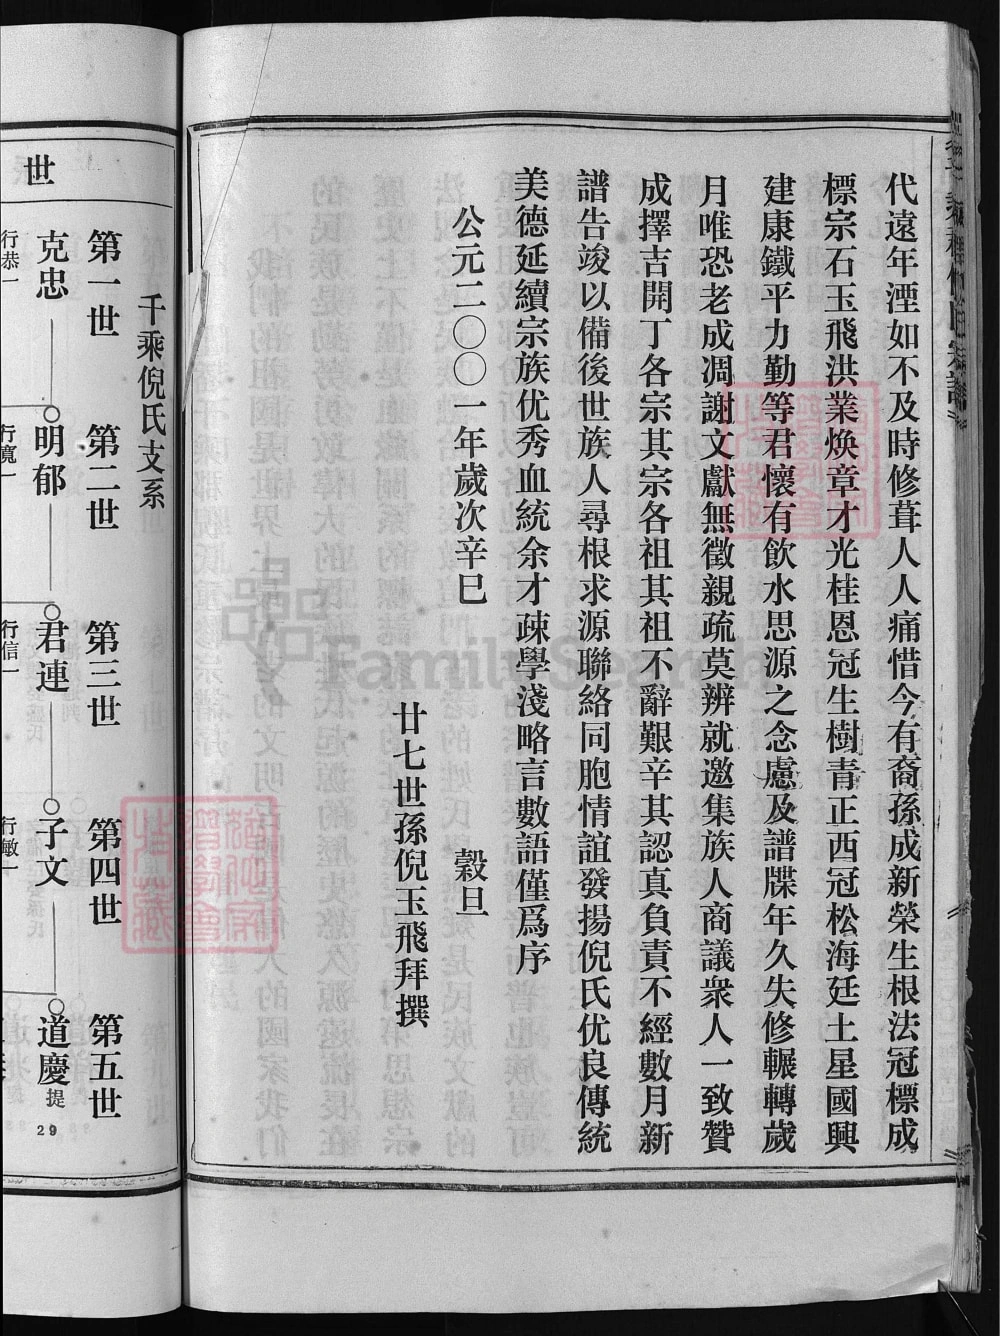 代遠年湮如不及時修葺人人痛惜今有裔孫成新榮生根法冠標成
標宗石玉飛洪業煥章才光桂恩冠生樹青正西冠松海廷土星國興
建康鐵平力勤等君懷有飲水思源之念慮及譜牒年久失修輾轉歲
月唯恐老成凋謝文獻無徵親疏莫辨就邀集族人商議衆人一致贊
成擇吉開丁各宗其宗各祖其祖不辭艱辛其認真負責不經數月新
譜告竣以備後世族人尋根求源聯絡同胞情誼發揚倪氏优良傳統
美德延續宗族优秀血統余才疎學淺略言數語僅爲序
公元二〇〇一年歲次辛巳　穀旦
廿七世孫倪玉飛拜撰
千乘倪氏支系
世
第一世　第二世　第三世　第四世　第五世
克忠　明郁　君連　子文　道慶提29
行恭一　行寬一　行信一　行敏一
FamilySearch